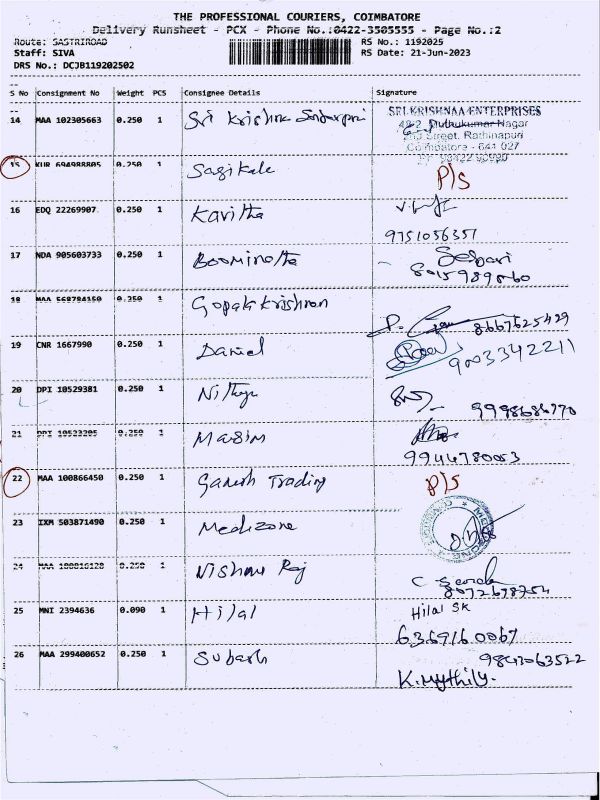 THE PROFESSIONAL COURIERS, COIMBATORE
Delivery Runsheet - PCX - Phone No.:0422-3505555 - Page No.:2
Route: SASTRIROAD RS No.: 1192025
Staff: SIVA RS Date: 21-Jun-2023
DRS No.: DCJB119202502
S No Consignment No Weight PCS Consignee Details Signature
14 MAA 102305663 0.250 1 Sri Krishna
SRI KRISHNAA ENTERPRISES
Muthukumar Nagar
Street, Rathinapuri
Coimbatore - 641 027
15 KUR 694988805 0.250 1 Sasikala P/S
16 EDQ 22269907 0.250 1 Kavitha
9751056357
17 NDA 905603733 0.250 1 Boominatha
18 MAA 568784150 0.250 1 Gopala Krishnan
8667625429
19 CNR 1667990 0.250 1 Daniel
9003342211
20 DPI 10529381 0.250 1 Nithya
9998686770
21 DPI 10533205 0.250 1 Masim
9944780053
22 MAA 100866450 0.250 1 Ganesh Trading P/S
23 IXM 503871490 0.250 1 Medizone
24 MAA 100816128 0.250 1 Nishani Raj
8072678754
25 MNI 2394636 0.090 1 Hilal Hilal SK
6369160067
26 MAA 299400652 0.250 1 Subash 9843063522
K. Mythily.